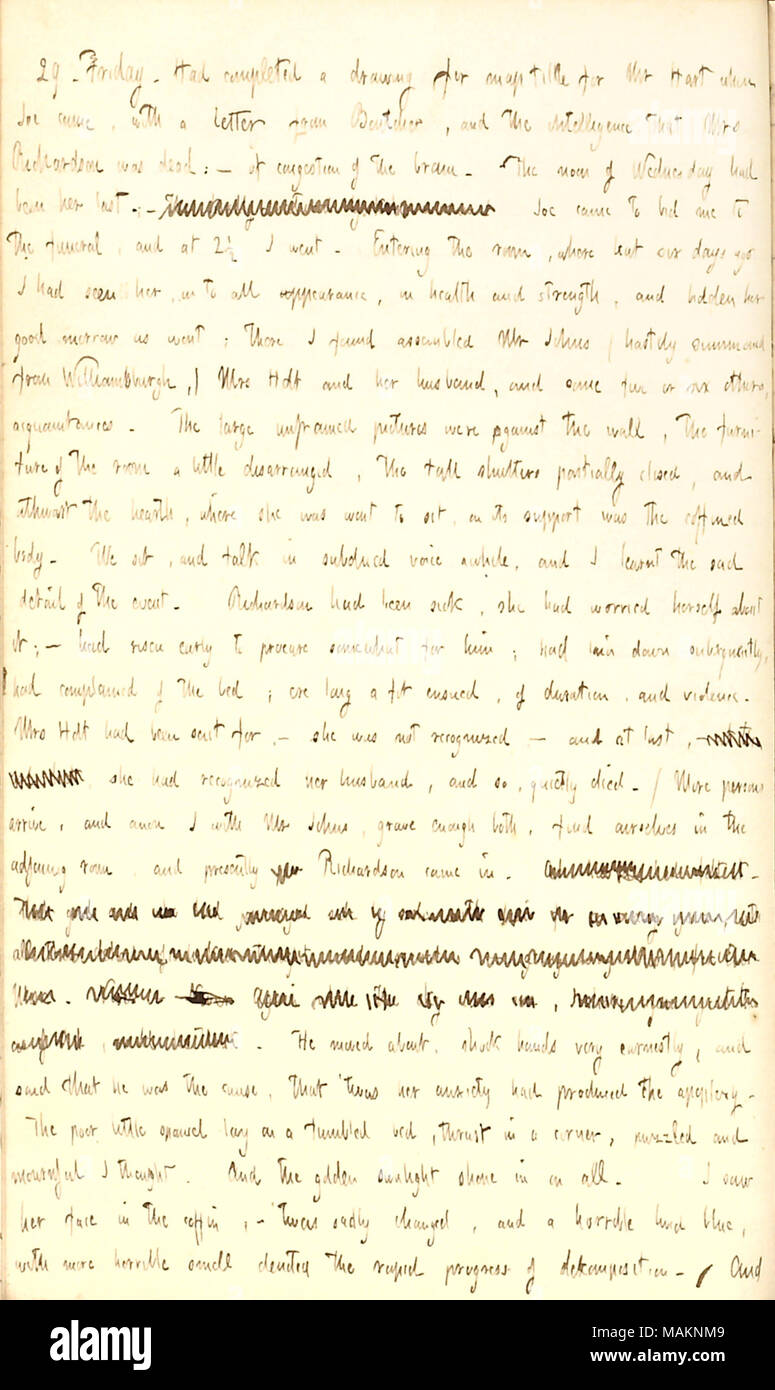 29. Friday. Had completed a drawing for map title for Mr Hart when
Joe came, with a letter from Boutcher, and the intelligence that Mrs
Richardson was dead; — of congestion of the brain. The noon of Wednesday had
been her last. — Joe came to bid me to
the funeral, and at 2 1/2 I went. Entering the room, where but six days ago
I had seen her, in to all appearance, in health and strength, and bidden her
good morrow as I went; There I found assembled Mr Johns (hastily summoned
from Williamsburgh,) Mrs Holt and her husband, and some five or six others,
acquaintances. The large unframed pictures were against the wall, the furni-
ture of the room a little disarranged, the tall shutters partially closed, and
athwart the hearth, where she was wont to sit, on its support was the coffined
body. We sit, and talk in subdued voice awhile, and I learnt the sad
detail of the event. Richardson had been sick, she had worried herself about
it; — had risen early to procure somewhat for him; had lain down subsequently,
had complained of the bed; ere long a fit ensued, of duration, and violence.
Mrs Holt had been sent for, — she was not recognized — and at last,
she had recognized her husband, and so, quietly died. / More persons
arrive, and anon I with Mr Johns, grave enough both, find ourselves in the
adjoining room, and presently Richardson came in.
He moved about, shook hands very earnestly, and
said that he was the cause, that 'twas her anxiety had produced the apoplexy.
The poor little spaniel lay on a tumbled bed, thrust in a corner, puzzled and
mournful I thought. And the golden sunlight shone in on all. I saw
her face in the coffin; — 'twas sadly changed, and a horrible lurid blue,
with more horrible smell denoted the rapid progress of dekomposition. / And
alamy
Image ID: MAKNM9
www.alamy.com